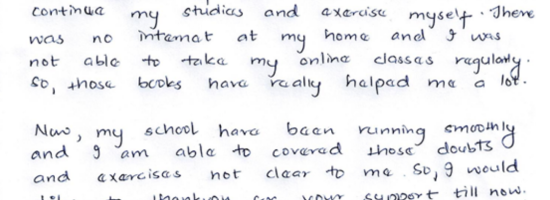 continue my studies and exercise myself. There
was no internet at my home and I was
not able to take my online classes regularly.
So, those books have really helped me a lot.
Now, my school have been running smoothly
and I am able to covered those doubts
and exercises not clear to me. So, I would
your support till now.